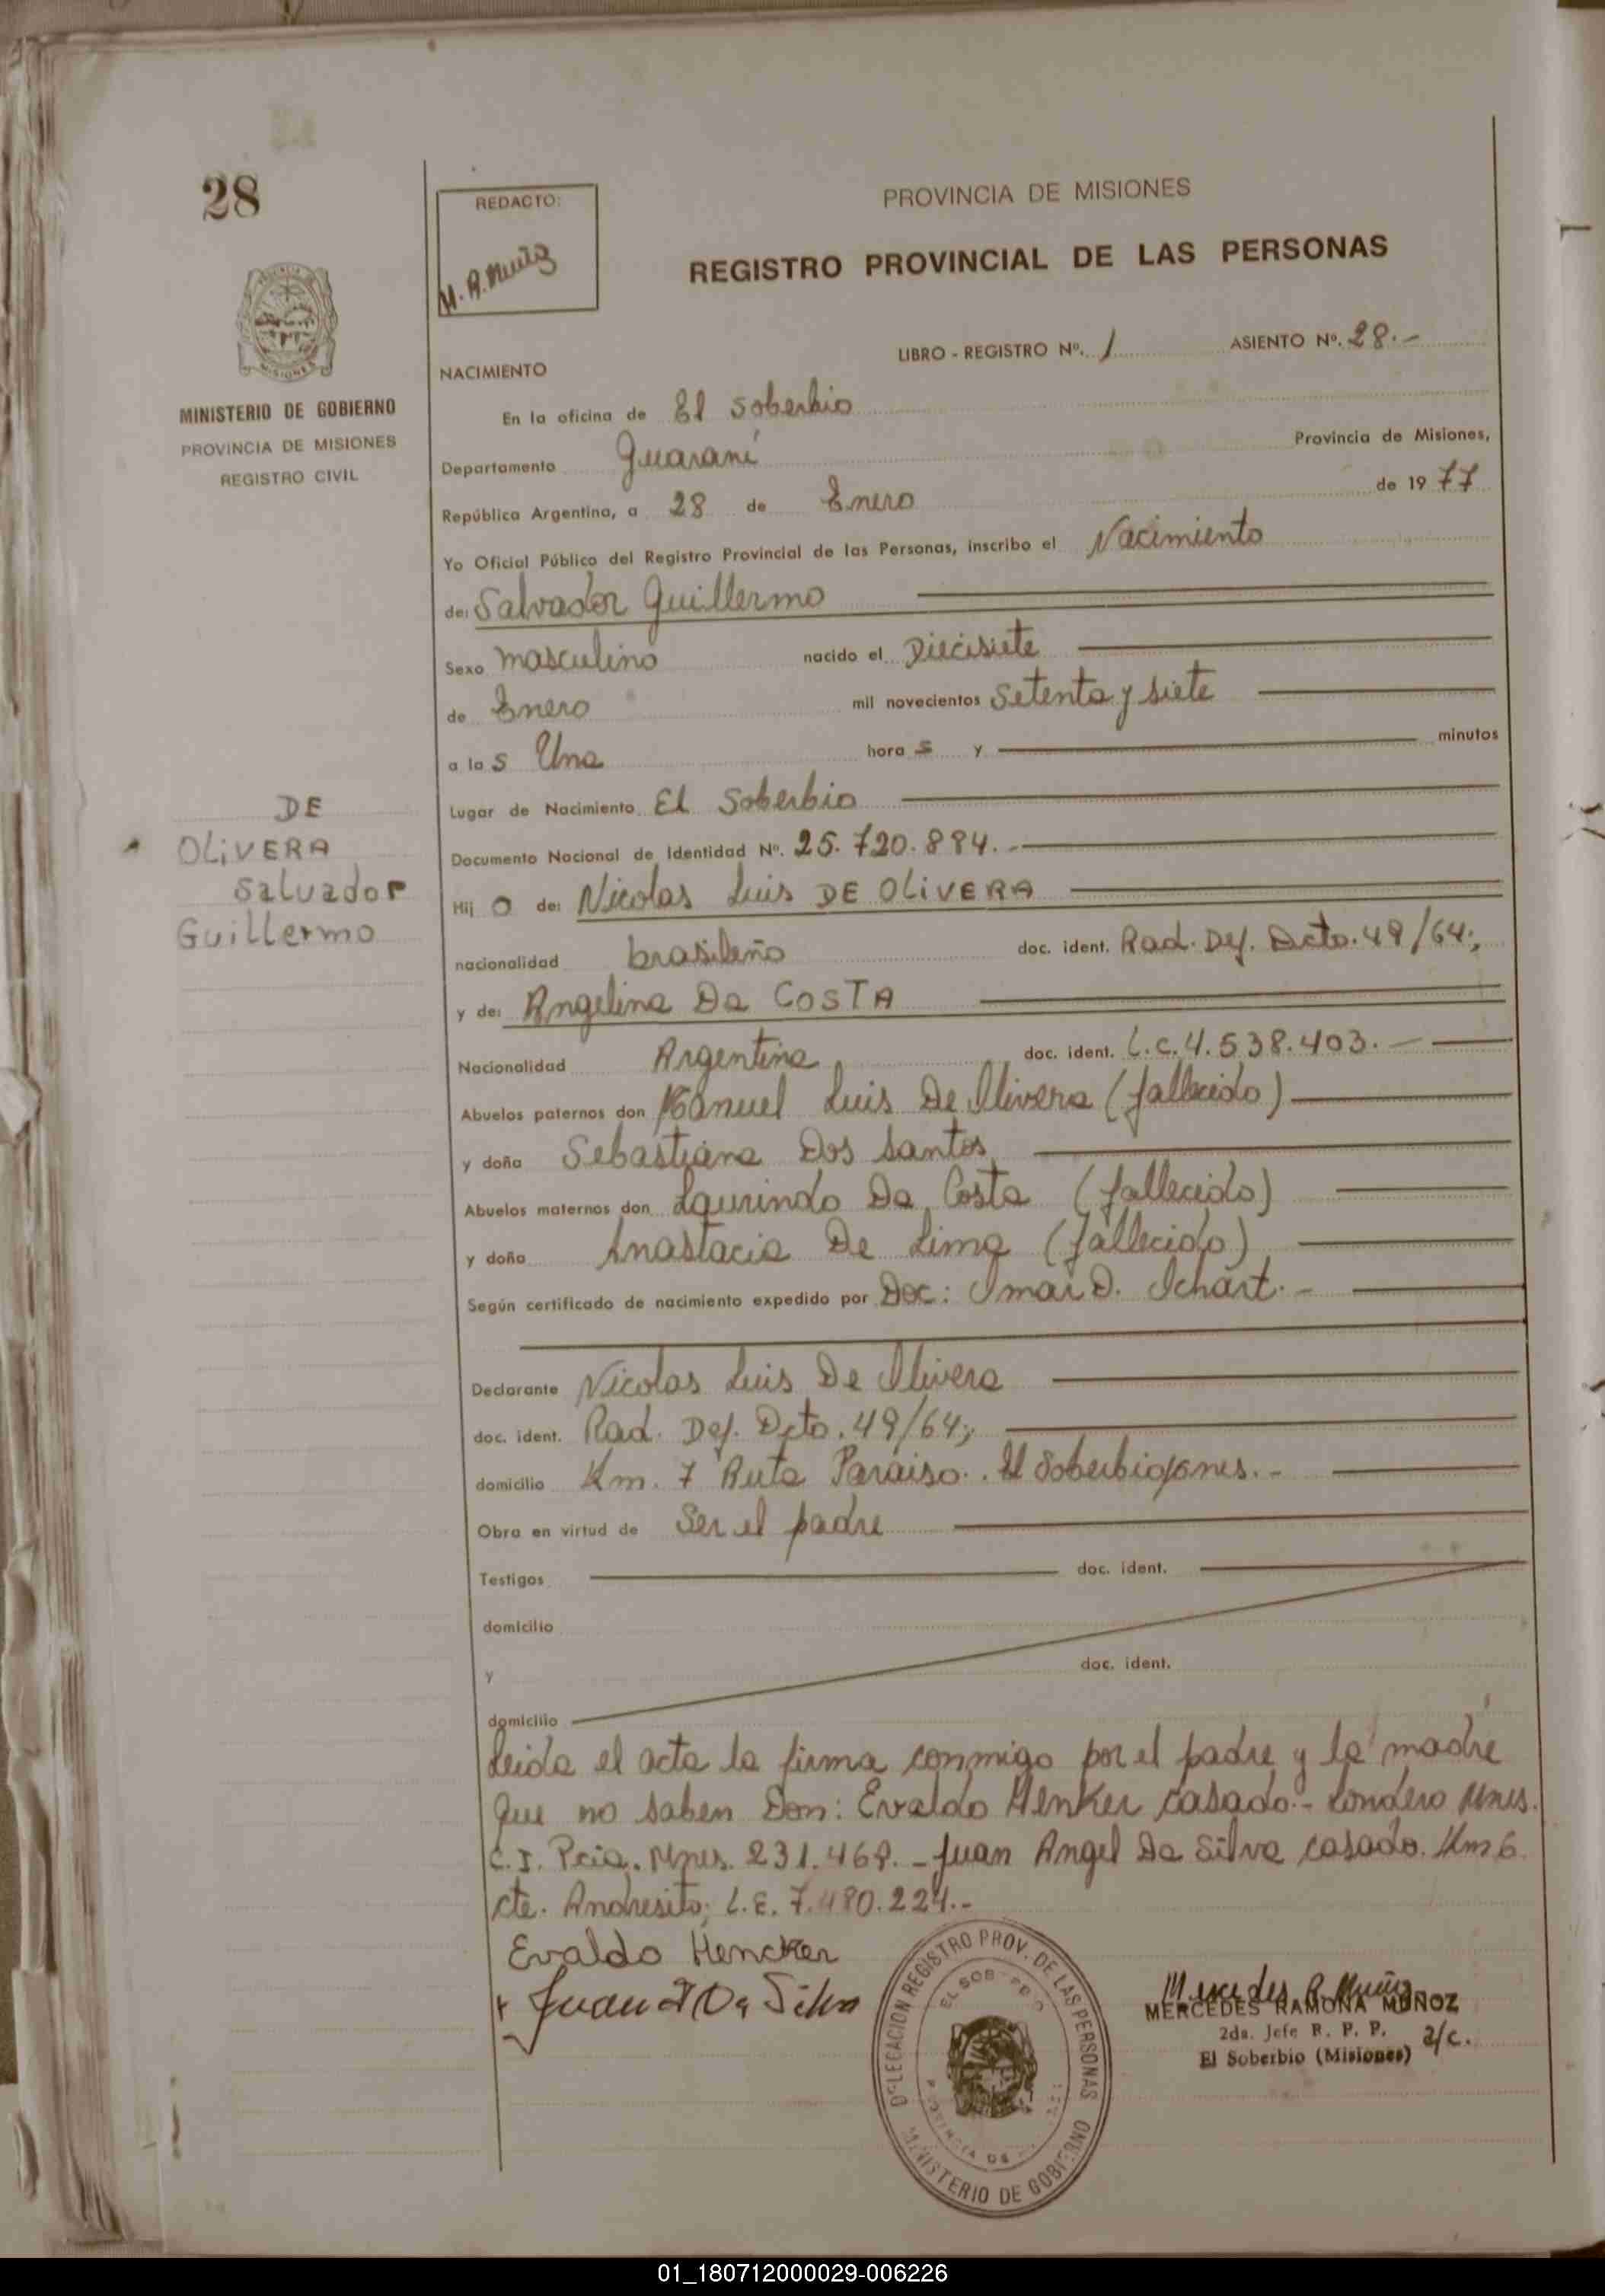 28
REDACTO:
M. R. Muñoz
PROVINCIA DE MISIONES
REGISTRO PROVINCIAL DE LAS PERSONAS
MISIONES
MINISTERIO DE GOBIERNO
PROVINCIA DE MISIONES
REGISTRO CIVIL
LIBRO - REGISTRO Nº. 1 ASIENTO Nº. 28.-
NACIMIENTO
En la oficina de El Soberbio
Departamento Guaraní Provincia de Misiones,
República Argentina, a 28 de Enero de 1977
Yo Oficial Público del Registro Provincial de las Personas, inscribo el Nacimiento
de: Salvador Guillermo
Sexo masculino nacido el Diecisiete
de Enero mil novecientos Setenta y siete
a las Una horas y minutos
Lugar de Nacimiento El Soberbio
Documento Nacional de Identidad Nº. 25.720.884.-
DE
OLiVERA
Salvador
Guillermo
Hijo de: Nicolas Luis DE OLiVERA
nacionalidad brasileño doc. ident. Rad. Def. Dcto. 49/64;
y de: Angelina Da COSTA
Nacionalidad Argentina doc. ident. L.C. 4.538.403.-
Abuelos paternos don Manuel Luis De Olivera (fallecido)
y doña Sebastiana Dos Santos
Abuelos maternos don Laurindo Da Costa (fallecido)
y doña Anastacia De Lima (fallecido)
Según certificado de nacimiento expedido por Doc: Omar D. Ichart.-
Declarante Nicolas Luis De Olivera
doc. ident. Rad. Def. Dcto. 49/64;
domicilio Km. 7 Ruta Paraiso. El Soberbio
Obra en virtud de Ser el padre
Testigos doc. ident.
domicilio
y doc. ident.
domicilio
Leida el acta la firma conmigo por el padre y la madre
que no saben Don: Evaldo Henker casado.- Londero Mnes.
C.I. Pcia. Mnes. 231.468.- Juan Angel Da Silva casado. Km 6
cte. Andresito; L.E. 7.480.224.-
Evaldo Hencker
Juan A Da Silva
DELEGACION REGISTRO PROV. DE LAS PERSONAS
MINISTERIO DE GOBIERNO
Mercedes R. Muñoz
MERCEDES RAMONA MUÑOZ
2da. Jefe R. P. P. a/c.
El Soberbio (Misiones)
01_180712000029-006226